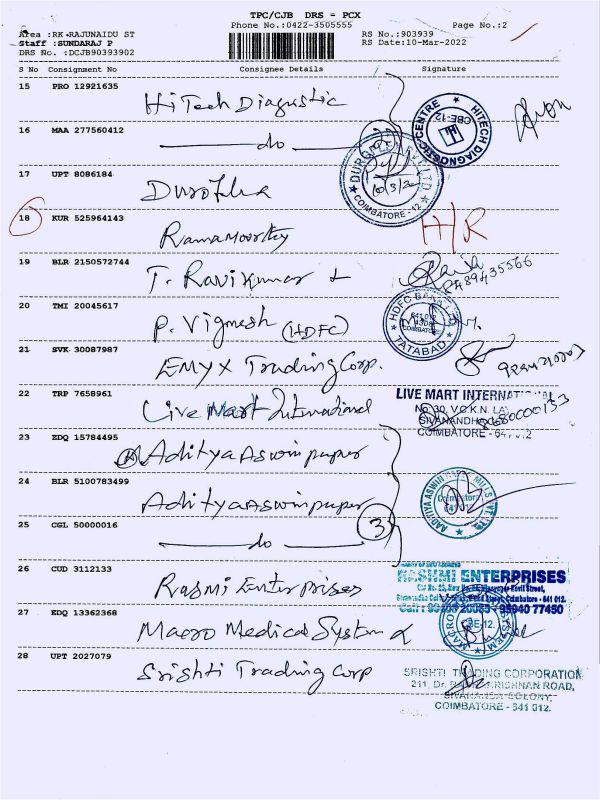 TPC/CJB DRS = PCX
Phone No.:0422-3505555 Page No.:2
Area :RK-RAJUNAIDU ST RS No.:903939
Staff :SUNDARAJ P RS Date:10-Mar-2022
DRS No. :DCJB90393902
S No Consignment No Consignee Details Signature
15 PRO 12921635
HiTech Diagnostic
HITECH DIAGNOSTIC CENTRE CBE-12
16 MAA 277560412
do
2
17 UPT 8086184
Duroflex
DUROFLEX PVT LTD
10/3/2
COIMBATORE - 12
18 KUR 525964143
Ramamoorthy
H/R
19 BLR 2150572744
T. Ravikumar
20 TMI 20045617
P. Vignesh (HDFC)
HDFC BANK TATABAD
641 012
21 SVK 30087987
EMYX Trading Corp.
22 TRP 7658961
Live Mart International
LIVE MART INTERNATIONAL
No. 30, V.O.K.N. LA
SIVANANDHA
COIMBATORE - 641 012
23 EDQ 15784495
Aditya Aswin paper
24 BLR 5100783499
Aditya Aswin paper
25 CGL 50000016
do
3
26 CUD 3112133
Rasmi Enterprises
RASHMI ENTERPRISES
Coimbatore - 641 012.
95940 77450
27 EDQ 13362368
Macro Medical System
28 UPT 2027079
Srishti Trading Corp
SRISHTI TRADING CORPORATION
211, Dr. RADHAKRISHNAN ROAD,
SIVANANDA COLONY,
COIMBATORE - 641 012.